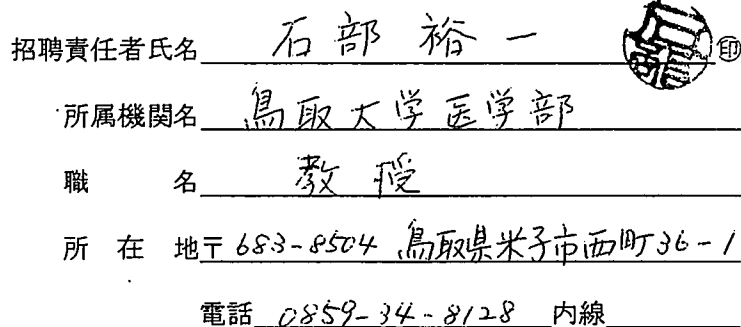 招聘責任者氏名 石部裕一 ㊞
所属機関名 鳥取大学医学部
職名 教授
所在地 〒683-8504 鳥取県米子市西町36-1
電話 0859-34-8128 内線